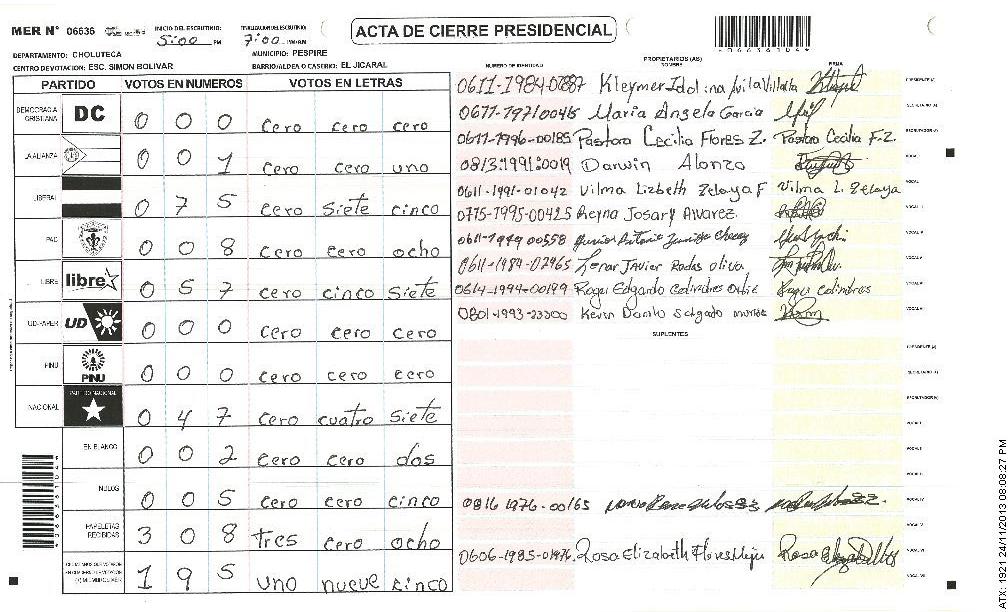 MER N° 06636
INICIO DEL ESCRUTINIO: 5:00 PM
7:00
ACTA DE CIERRE PRESIDENCIAL
DEPARTAMENTO: CHOLUTECA
MUNICIPIO: PESPIRE
CENTRO DE VOTACION: ESC. SIMON BOLIVAR
BARRIO/ALDEA O CASERIO: EL JICARAL
PARTIDO VOTOS EN NUMEROS VOTOS EN LETRAS
DEMOCRACIA CRISTIANA DC 0 0 0 cero cero cero
LA ALIANZA 0 0 1 cero cero uno
LIBERAL 0 7 5 cero siete cinco
PAC 0 0 8 cero cero ocho
LIBRE libre 0 5 7 cero cinco siete
UD-FAPER UD 0 0 0 cero cero cero
PINU PINU 0 0 0 cero cero cero
NACIONAL PARTIDO NACIONAL 0 4 7 cero cuatro siete
EN BLANCO 0 0 2 cero cero dos
NULOS 0 0 5 cero cero cinco
PAPELETAS RECIBIDAS 3 0 8 tres cero ocho
1 9 5 uno nueve cinco
NUMERO DE IDENTIDAD
PROPIETARIOS (AS)
NOMBRE
FIRMA
0611-1984-00887 Kleymer Idolina
Maria Angela Garcia
0611-1996-00185 Pastora Cecilia Flores Z. Pastora Cecilia F. Z.
0813-1991-20019 Darwin Alonzo
0611-1991-01042 Vilma Lizbeth Zelaya F Vilma L. Zelaya
Reyna Josary Alvarez
0611-1984-02965 Lenar Javier Rodas Oliva
0614-1994-00199 Roger Edgardo Colindres Ortiz Roger Colindres
Kevin Danilo Salgado
SUPLENTES
0816 1976-00165
Rosa Elizabeth Flores Rosa
ATX: 1921 24/11/2013 08:08:27 PM